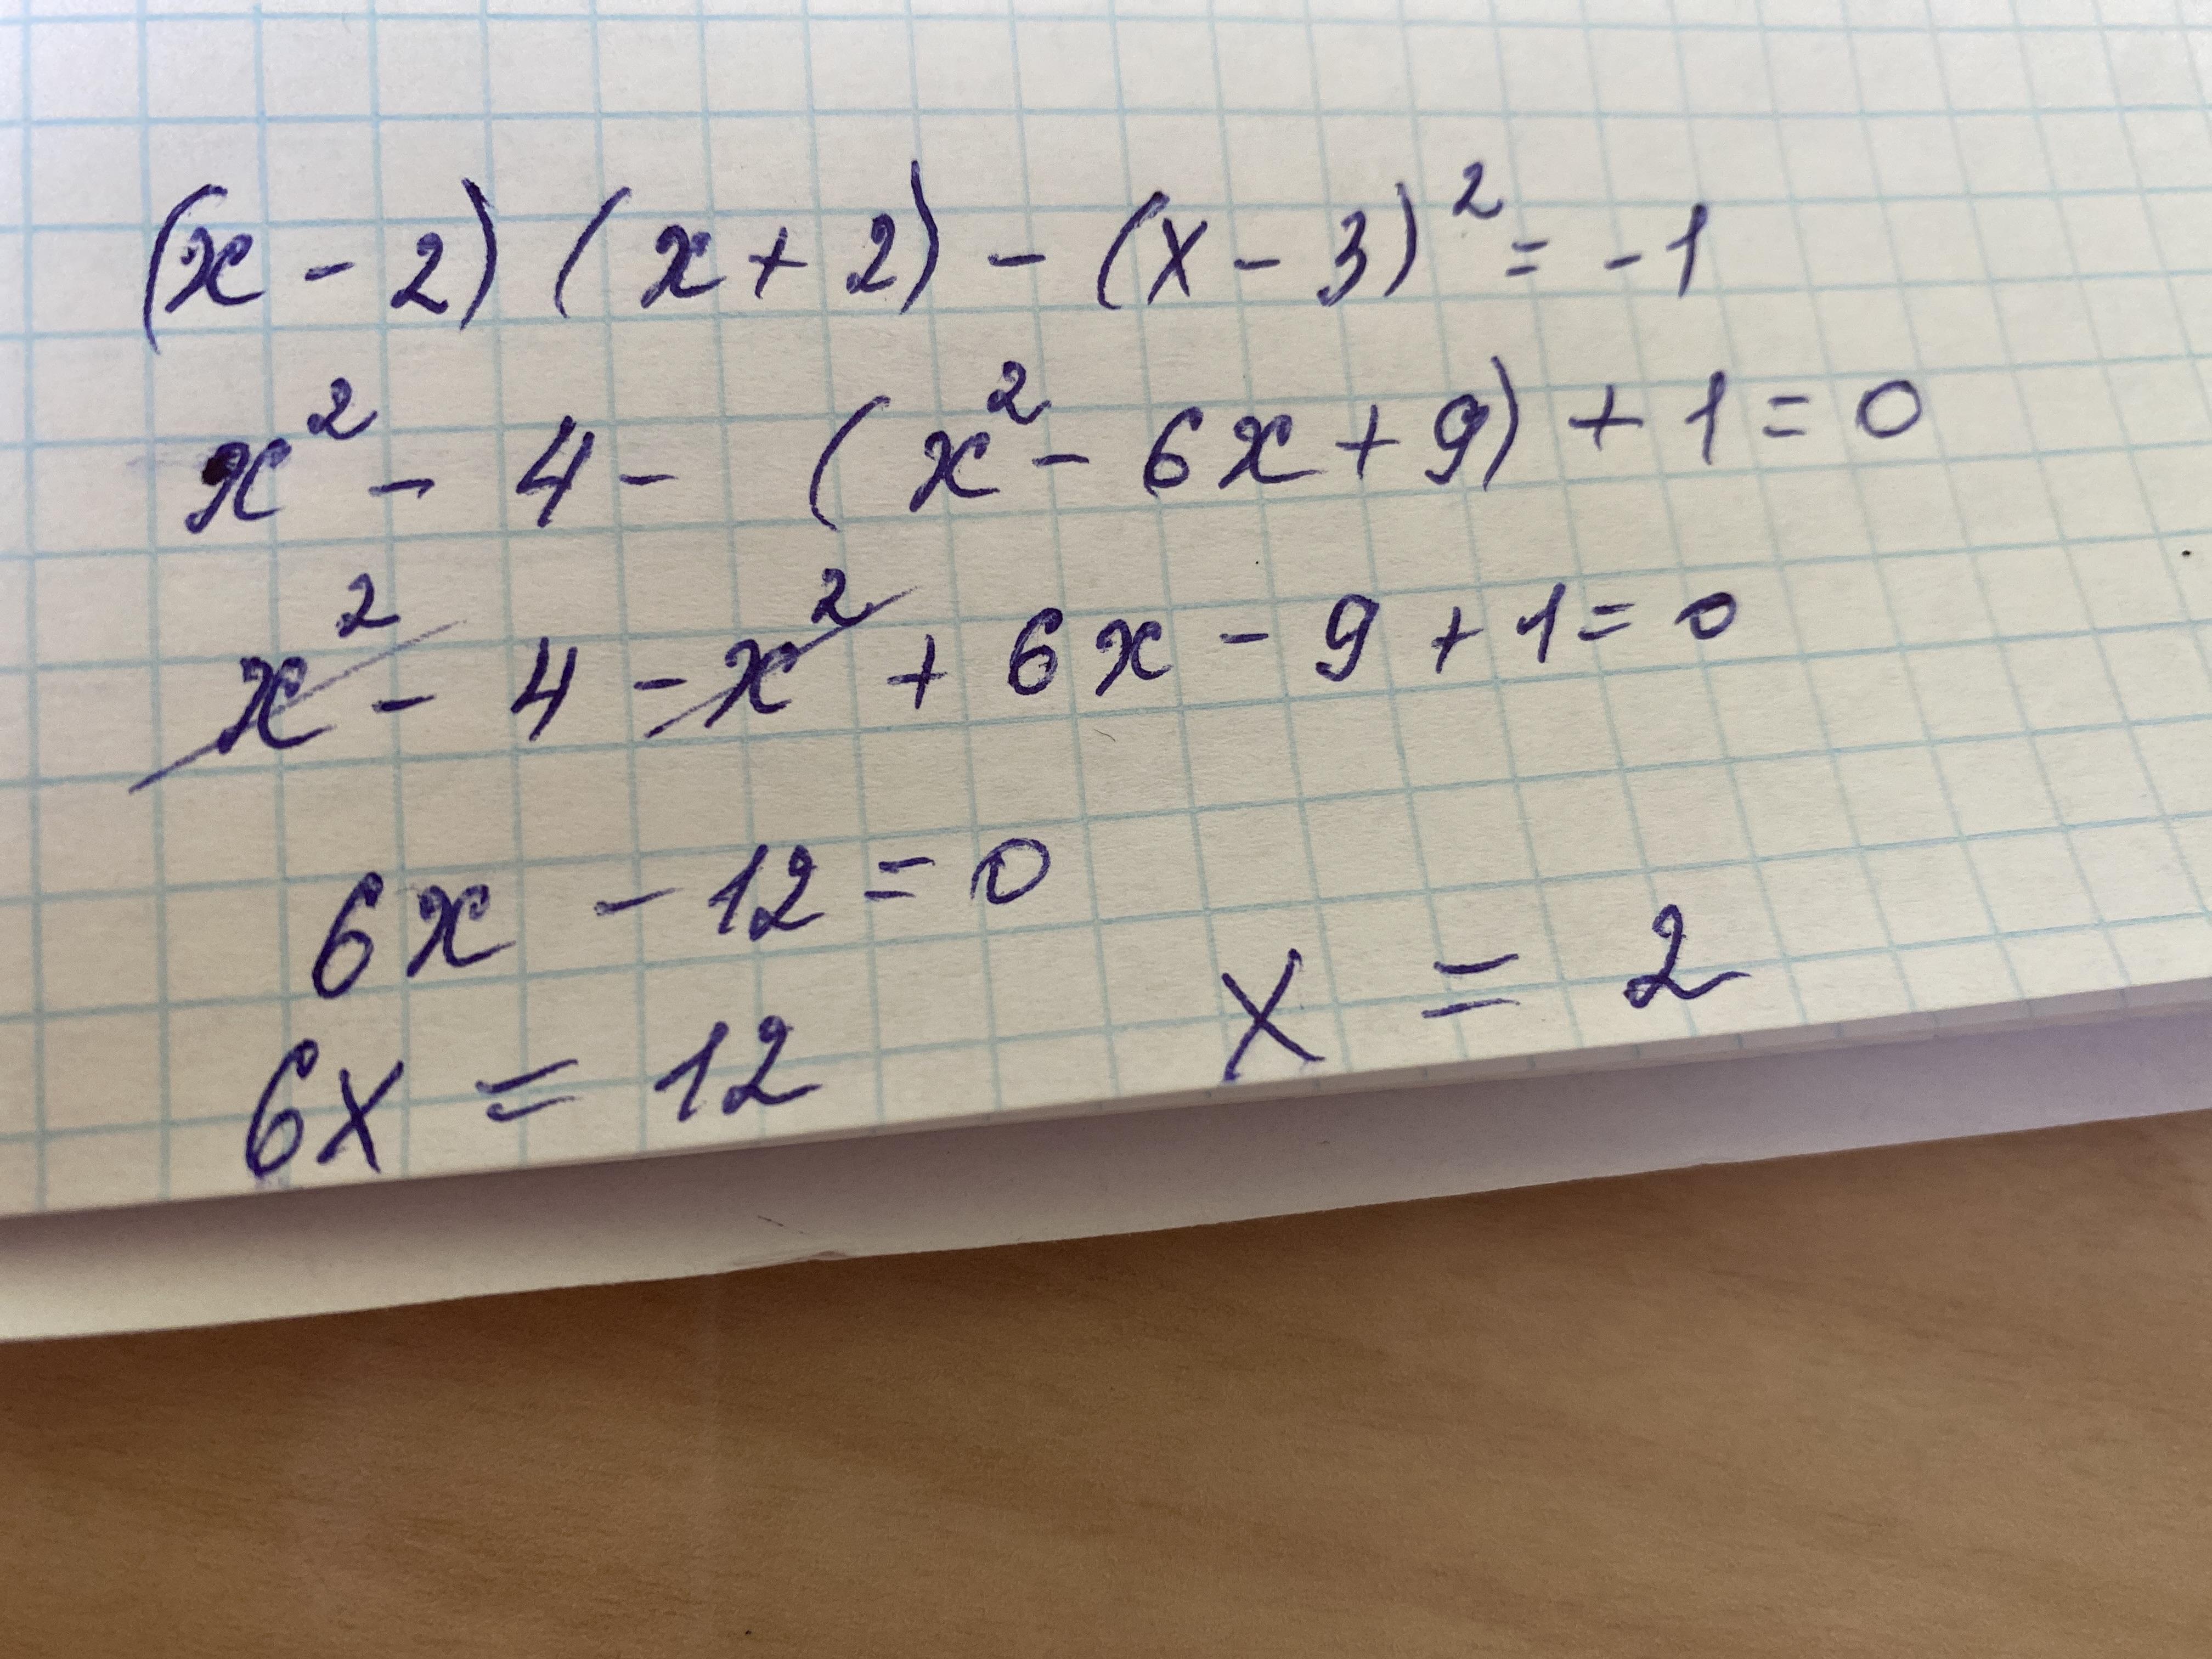 (x - 2) (x + 2) - (x - 3)² = -1
x² - 4 - (x² - 6x + 9) + 1 = 0
x² - 4 - x² + 6x - 9 + 1 = 0
6x - 12 = 0
6x = 12 x = 2